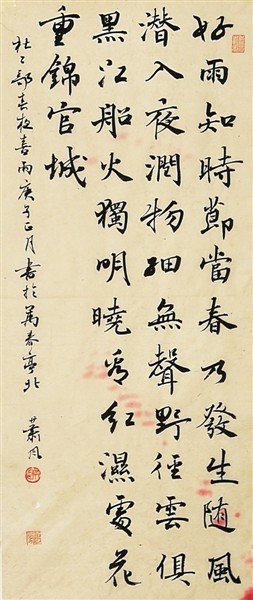 好雨知時節當春乃發生随風
潛入夜潤物細無聲野徑雲俱
黑江船火獨明曉看紅濕處花
重錦官城
杜工部春夜喜雨庚子正月書於萬春亭北
蕭风